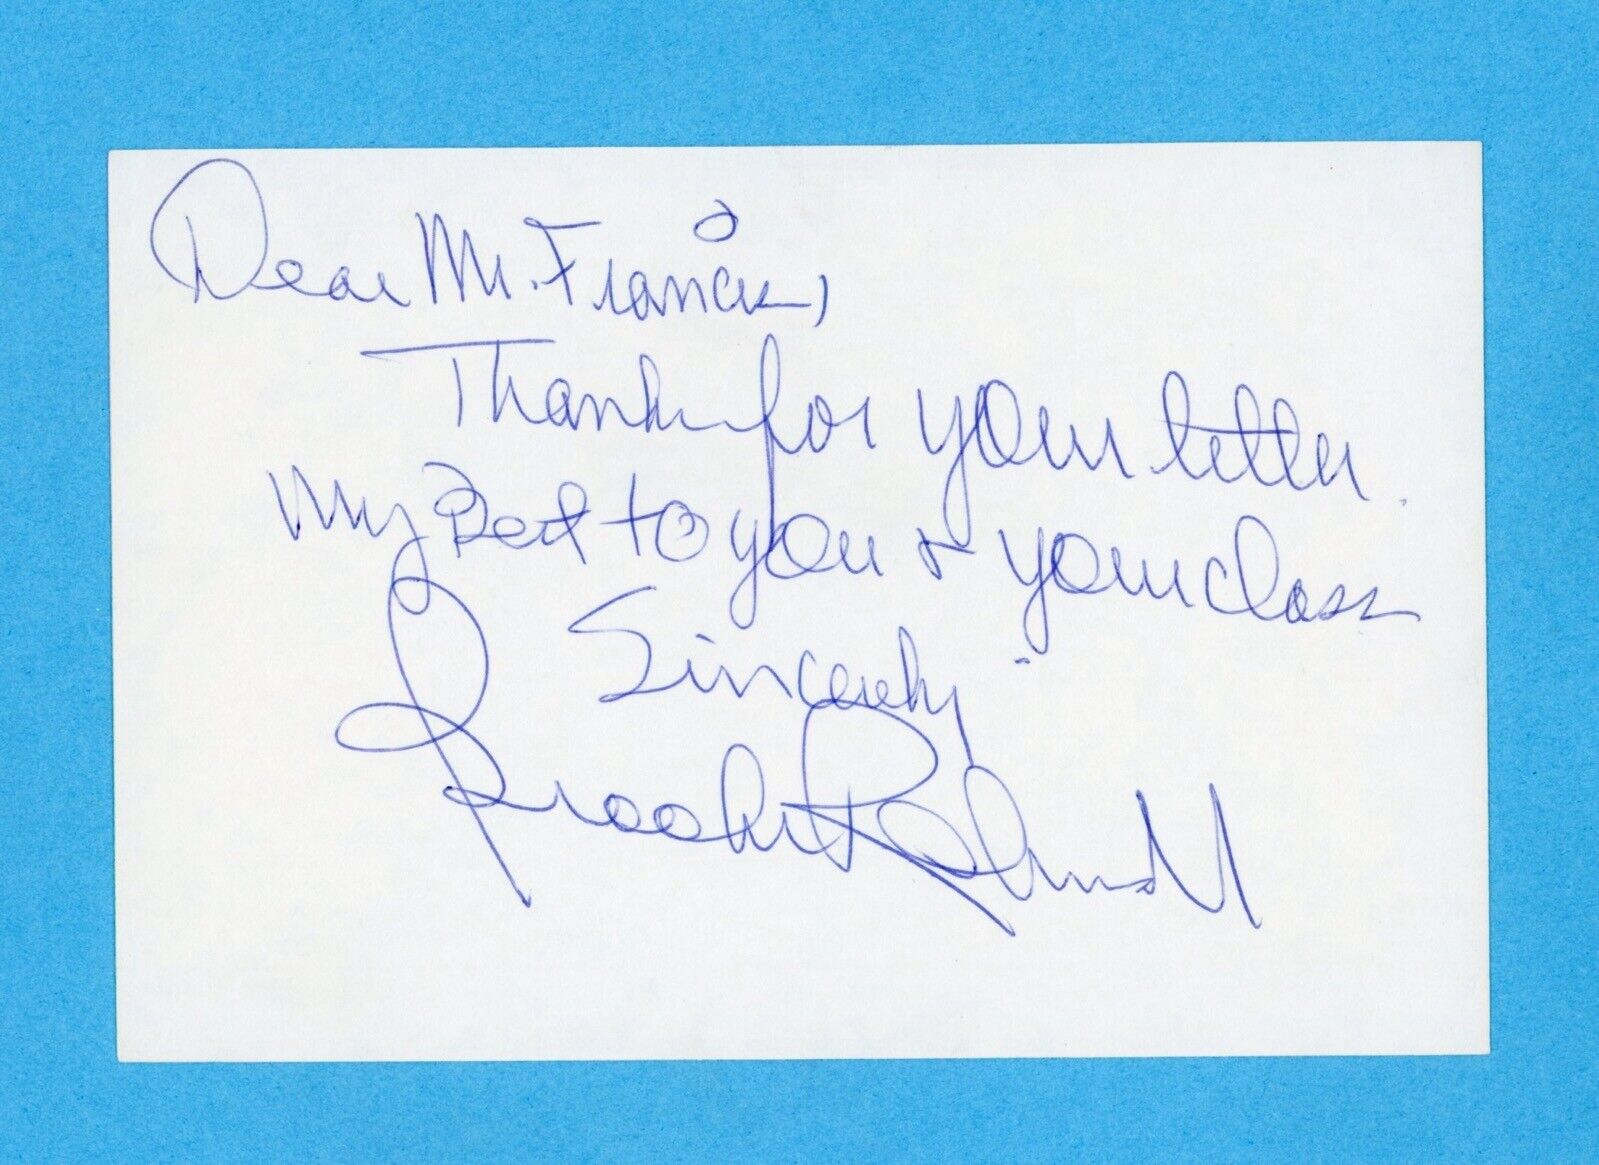 Dear Mr. Francis,
Thanks for your letter.
My Best to you & your class
Sincerely,
Brooke